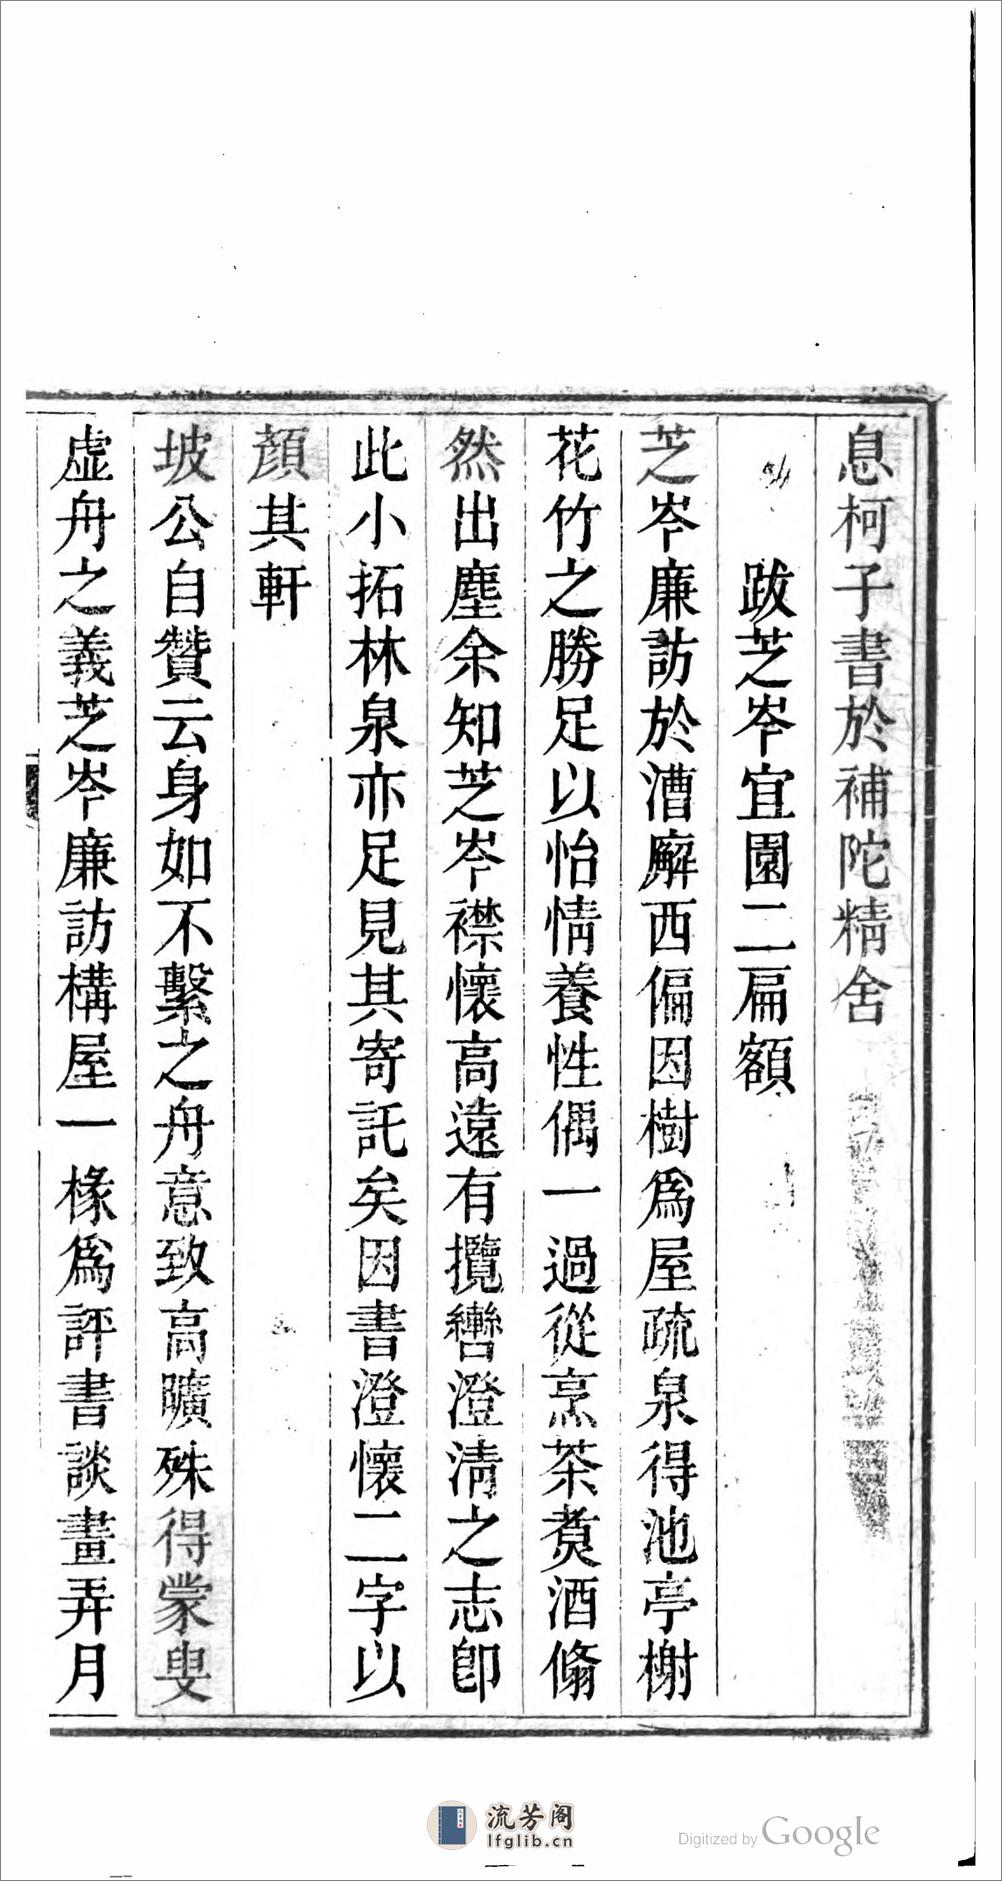 息柯子書於補陀精舍
跋芝岑宜園二扁額
芝岑廉訪於漕廨西偏因樹爲屋疏泉得池亭榭
花竹之勝足以怡情養性偶一過從烹茶煑酒翛
然出塵余知芝岑襟懷高遠有攬轡澄淸之志卽
此小拓林泉亦足見其寄託矣因書澄懷二字以
顔其軒
坡公自贊云身如不繫之舟意致高曠殊得蒙叟
虛舟之義芝岑廉訪構屋一椽爲評書談畫弄月
流芳阁
lfglib.cn
Digitized by Google